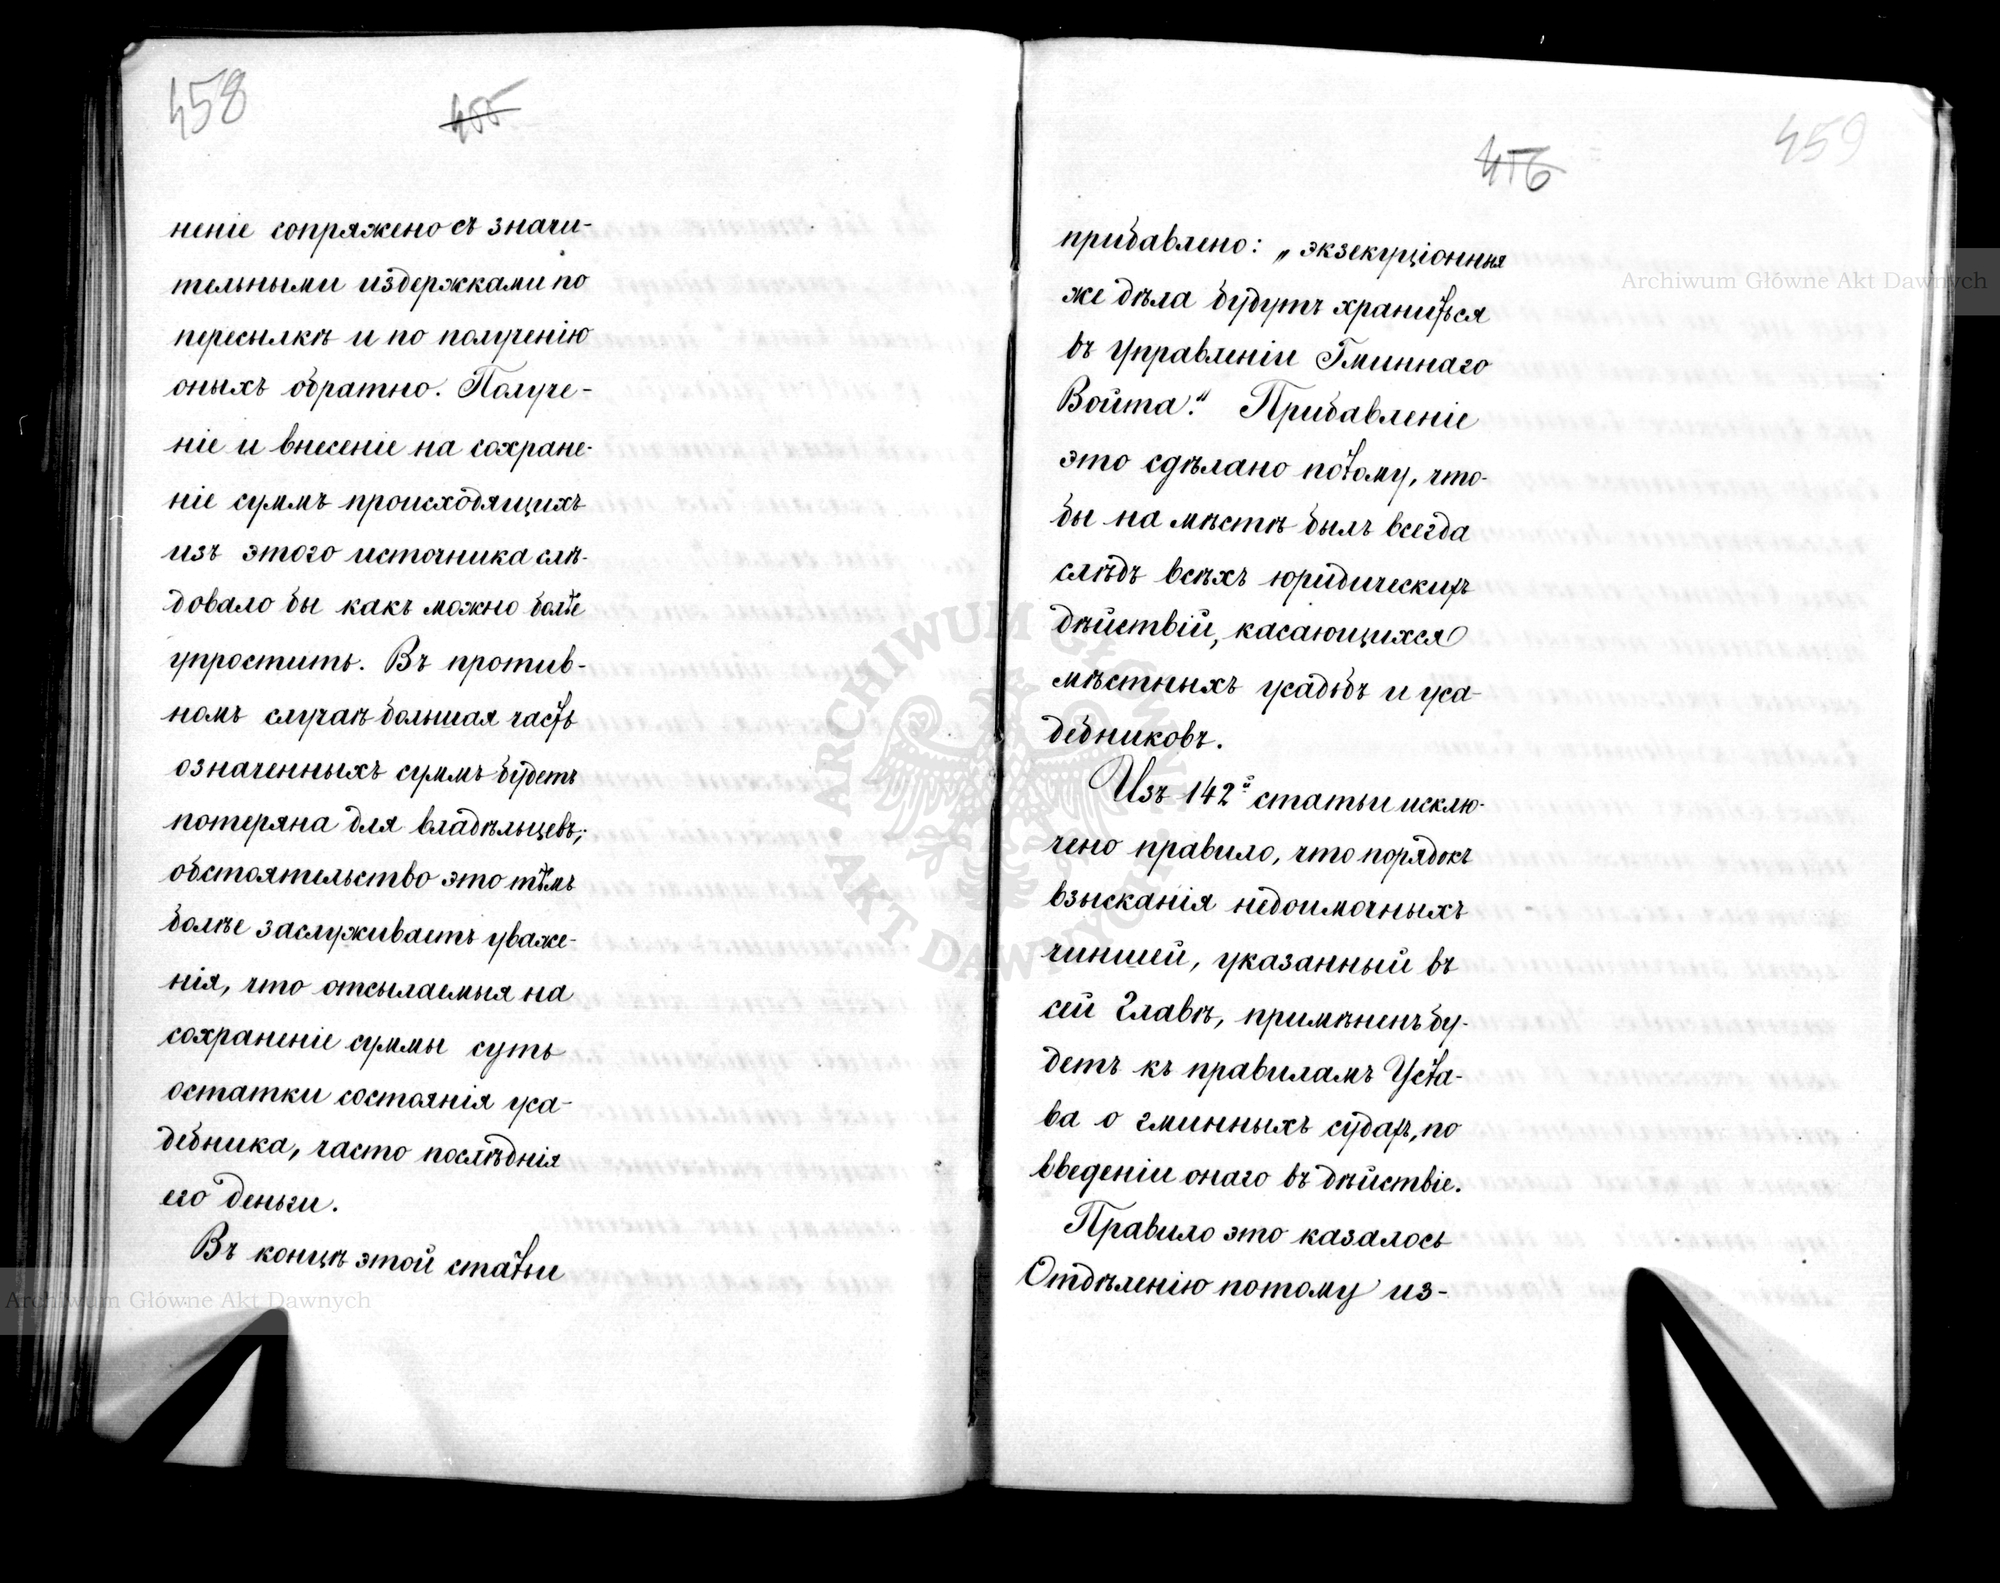 458
455
неніе сопряжено съ значи-
тельными издержками по
пересылкѣ и по полученію
оныхъ обратно. Получе-
ніе и внесеніе на сохране-
ніе суммъ происходящихъ
изъ этого источника слѣ-
довало бы какъ можно болѣе
упростить. Въ против-
номъ случаѣ большая часть
означенныхъ суммъ будетъ
потеряна для владѣльцевъ;
обстоятельство это тѣмъ
болѣе заслуживаетъ уваже-
нія, что отсылаемыя на
сохраненіе суммы суть
остатки состоянія уса-
дебника, часто послѣднія
его деньги.
Въ концѣ этой статьи
459
456
прибавлено: „экзекуціонныя
же дѣла будутъ храниться
въ Управленіи Гминнаго
Войта." Прибавленіе
это сдѣлано потому, что-
бы на мѣстѣ былъ всегда
слѣдъ всѣхъ юридическихъ
дѣйствій, касающихся
мѣстныхъ усадьбъ и уса-
дебниковъ.
Изъ 142й статьи исклю-
чено правило, что порядокъ
взысканія недоимочныхъ
чиншей, указанный въ
сей Главѣ, примѣненъ бу-
детъ къ правиламъ Уста-
ва о гминныхъ судахъ, по
введеніи онаго въ дѣйствіе.
Правило это казалось
Отдѣленію потому из-
Archiwum Główne Akt Dawnych
ARCHIWUM GŁÓWNE AKT DAWNYCH
Archiwum Główne Akt Dawnych